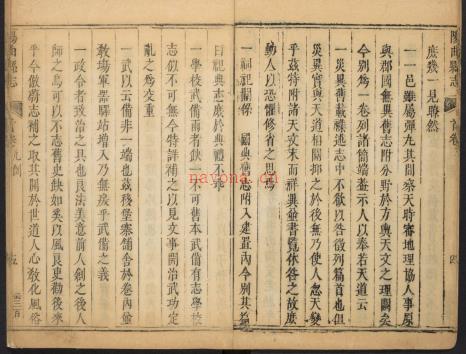 庶幾一見瞭然
一一邑雖屬彈九其間察天時審地理協人事原
與郡國無異舊志附分野於方輿天文之理闕矣
今別為一卷列諸簡端蓋示人以奉若天道云
一災異舊載襍述志中不獨以咎徵列篇首也但
災異實與天道相關抑之於後無乃使人忽天變
乎茲特附諸天文末而詳其
動人以恐懼修省之思焉
一祠祀關係 國典舊志附入建置內今別其
曰祀典志庶於典體不
一學校武備兩者缺一不可舊本武備有志學校
志似不可無今特詳補之以見文事開治武功定
亂之為交重
一武以云備非一端也茲
教場軍器驛站增入乃無戾乎武備之義
一政令者致治之具也良法美意前人創之後人
師之烏可以不志舊史缺如奚以風良吏勸後來
乎今倣
志補之取其關於世道人心教化風俗
陽曲縣志
nayona.cn